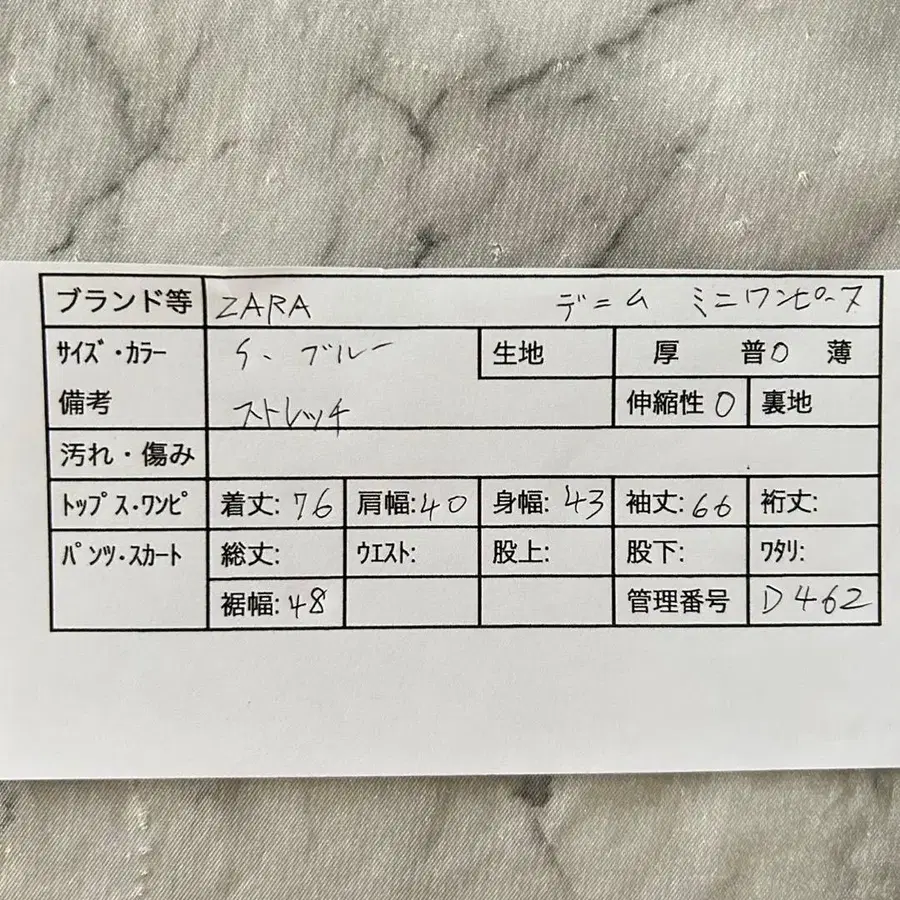 ブランド等 ZARA デニム ミニワンピース
サイズ・カラー S. ブルー 生地 厚 普〇 薄
備考 ストレッチ 伸縮性 〇 裏地
汚れ・傷み
トップス・ワンピ 着丈: 76 肩幅: 40 身幅: 43 袖丈: 66 裄丈:
パンツ・スカート 総丈: ウエスト: 股上: 股下: ワタリ:
裾幅: 48 管理番号 D462